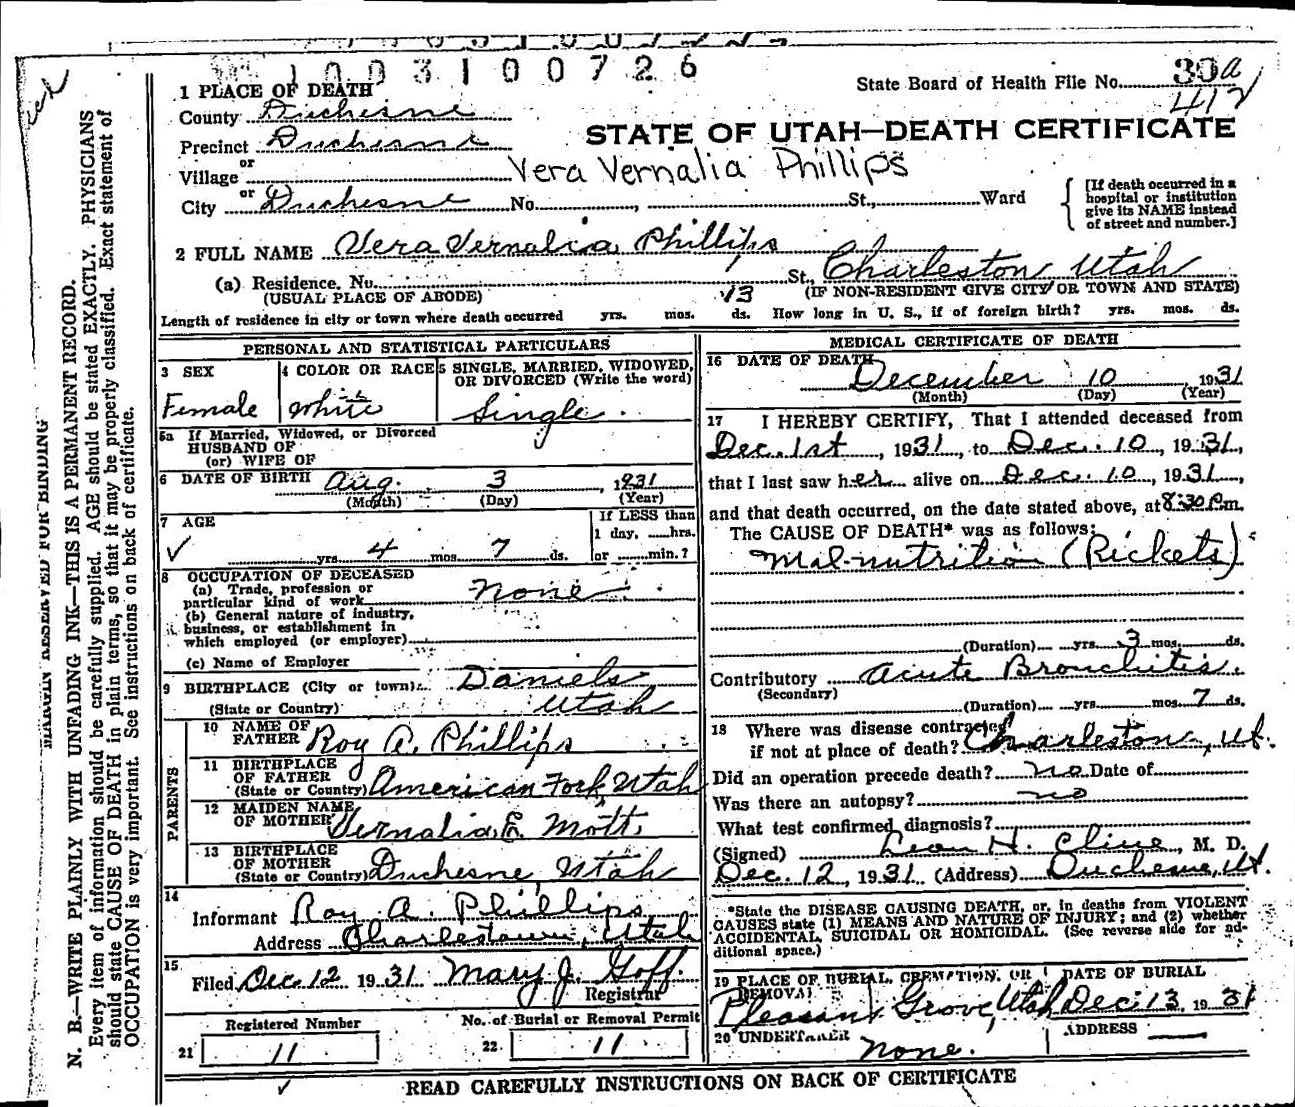 1003100726
State Board of Health File No. 30a
412
1 PLACE OF DEATH
County Duchesne
STATE OF UTAH—DEATH CERTIFICATE
Precinct Duchesne
or
Village Vera Vernalia Phillips
or
City Duchesne No. , St., Ward
[If death occurred in a
hospital or institution
give its NAME instead
of street and number.]
2 FULL NAME Vera Vernalia Phillips
(a) Residence. No. St., Charleston Utah
(USUAL PLACE OF ABODE) (IF NON-RESIDENT GIVE CITY OR TOWN AND STATE)
Length of residence in city or town where death occurred yrs. mos. 13 ds. How long in U. S., if of foreign birth? yrs. mos. ds.
PERSONAL AND STATISTICAL PARTICULARS
3 SEX
Female
4 COLOR OR RACE
White
5 SINGLE, MARRIED, WIDOWED,
OR DIVORCED (Write the word)
Single
5a If Married, Widowed, or Divorced
HUSBAND OF
(or) WIFE OF
6 DATE OF BIRTH Aug. 3, 1931
(Month) (Day) (Year)
7 AGE
If LESS than
1 day, hrs.
yrs. 4 mos. 7 ds. or min.?
8 OCCUPATION OF DECEASED
(a) Trade, profession or
particular kind of work None
(b) General nature of industry,
business, or establishment in
which employed (or employer)
(c) Name of Employer
9 BIRTHPLACE (City or town) Daniels
(State or Country) Utah
PARENTS
10 NAME OF
FATHER Roy A. Phillips
11 BIRTHPLACE
OF FATHER
(State or Country) American Fork Utah
12 MAIDEN NAME
OF MOTHER Vernalia E. Mott
13 BIRTHPLACE
OF MOTHER
(State or Country) Duchesne, Utah
14
Informant Roy A. Phillips
Address Charlestown, Utah
15
Filed Dec. 12 1931 Mary J. Goff.
Registrar
Registered Number No. of Burial or Removal Permit
21 11 22 11
MEDICAL CERTIFICATE OF DEATH
16 DATE OF DEATH
December 10 1931
(Month) (Day) (Year)
17 I HEREBY CERTIFY, That I attended deceased from
Dec. 1st, 1931, to Dec. 10, 1931,
that I last saw her alive on Dec. 10, 1931,
and that death occurred, on the date stated above, at 8:30 P.m.
The CAUSE OF DEATH* was as follows:
Mal-nutrition (Rickets)
(Duration) yrs. 3 mos. ds.
Contributory Acute Bronchitis.
(Secondary)
(Duration) yrs. mos. 7 ds.
18 Where was disease contracted
if not at place of death? Charleston, Ut.
Did an operation precede death? no Date of
Was there an autopsy? no
What test confirmed diagnosis?
(Signed) Leon H. Cline, M. D.
Dec. 12, 1931 (Address) Duchesne, Ut.
*State the DISEASE CAUSING DEATH, or, in deaths from VIOLENT
CAUSES state (1) MEANS AND NATURE OF INJURY; and (2) whether
ACCIDENTAL, SUICIDAL OR HOMICIDAL. (See reverse side for ad-
ditional space.)
19 PLACE OF BURIAL, CREMATION, OR
REMOVAL
DATE OF BURIAL
Pleasant Grove, Utah Dec. 13, 1931
20 UNDERTAKER
None.
ADDRESS
READ CAREFULLY INSTRUCTIONS ON BACK OF CERTIFICATE
MARGIN RESERVED FOR BINDING
N. B.—WRITE PLAINLY WITH UNFADING INK—THIS IS A PERMANENT RECORD.
Every item of information should be carefully supplied. AGE should be stated EXACTLY. PHYSICIANS
should state CAUSE OF DEATH in plain terms, so that it may be properly classified. Exact statement of
OCCUPATION is very important. See instructions on back of certificate.